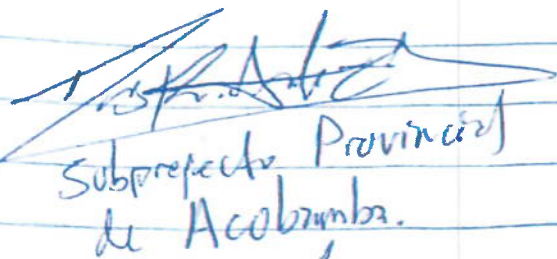 Subprefecto Provincial
de Acobamba.